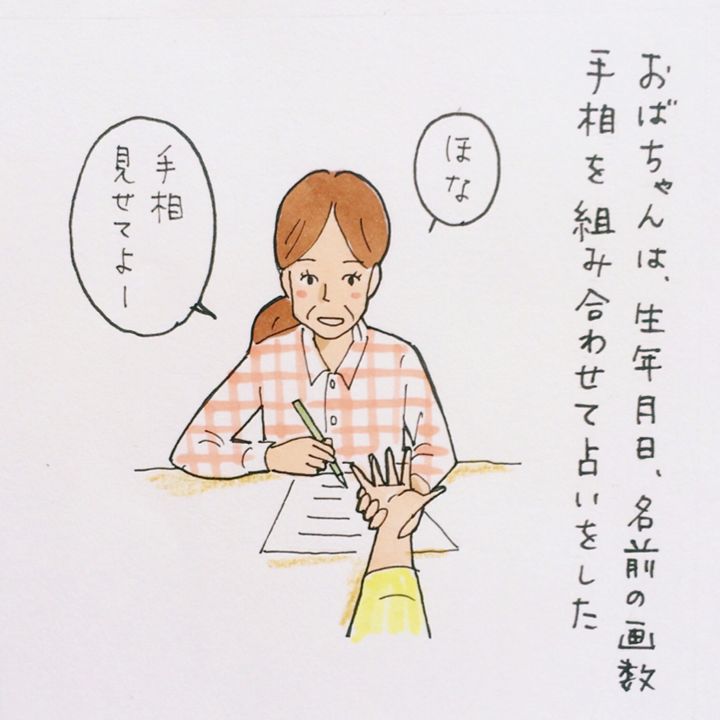 おばちゃんは、生年月日、名前の画数
手相を組み合わせて占いをした
ほな
手相
見せてよー